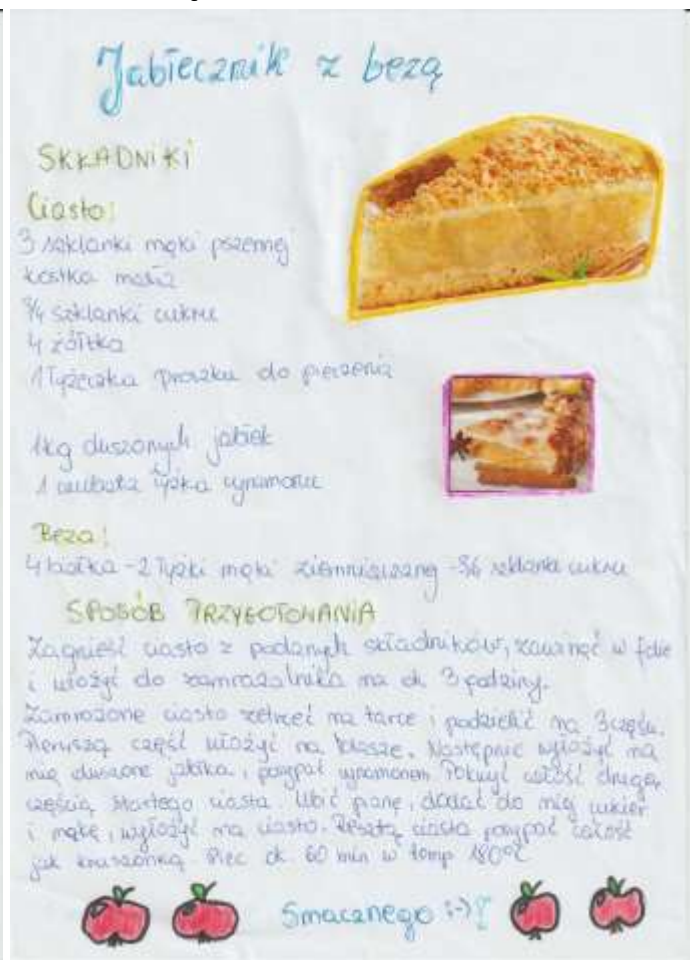 Jabłecznik z bezą
SKŁADNIKI
Ciasto:
3 szklanki mąki pszennej
kostka masła
3/4 szklanki cukru
4 żółtka
1 łyżeczka proszku do pieczenia
1kg duszonych jabłek
1 czubata łyżka cynamonu
Beza:
4 białka - 2 łyżki mąki ziemniaczanej - szklanka cukru
SPOSÓB PRZYGOTOWANIA
Zagnieść ciasto z podanych składników, zawinąć w folie
i włożyć do zamrażalnika na ok 3 godziny.
Zamrożone ciasto zetrzeć na tarce i podzielić na 3 części.
Pierwszą część ułożyć na blasze. Następnie wyłożyć na
nią duszone jabłka, posypać cynamonem. Pokryć całość drugą
częścią startego ciasta. Ubić pianę, dodać do niej cukier
i mąkę, wyłożyć na ciasto. Resztą ciasta posypać całość
jak kruszonką. Piec ok 60 min w temp 180°C
Smacznego :-)